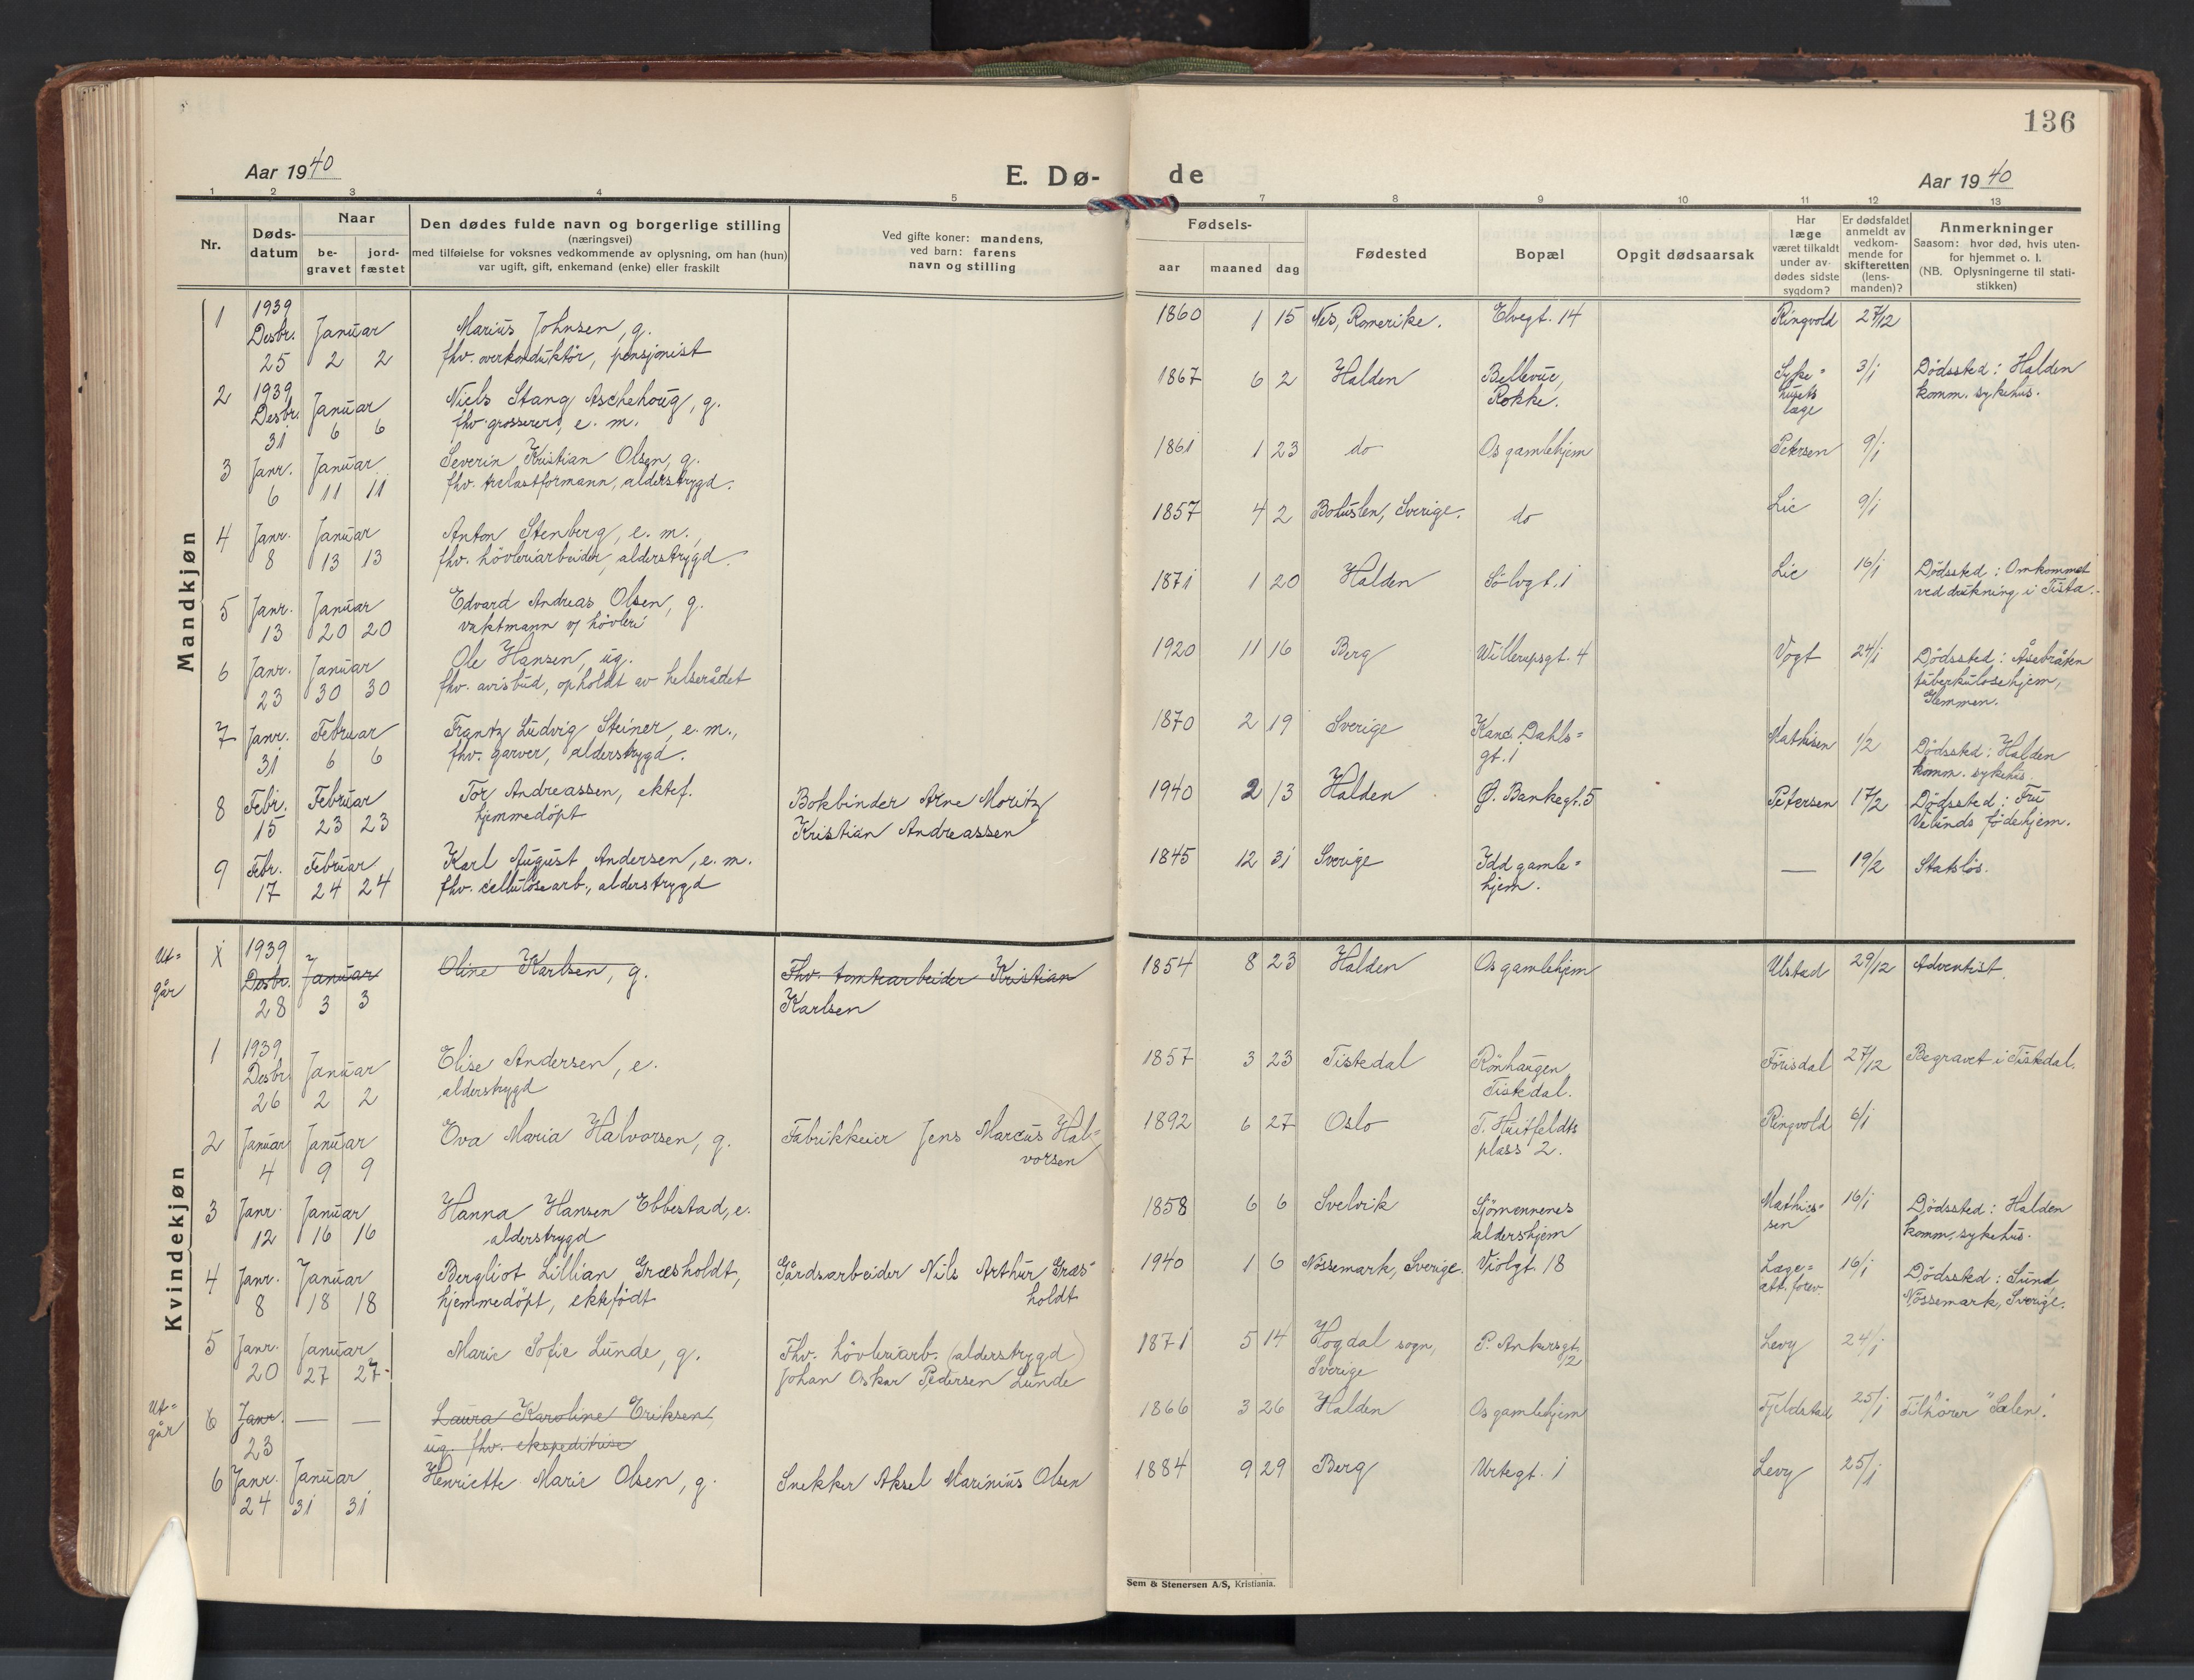 136
Aar 1940
E. Dø-
de
Aar 1940
1 2 3 4 5 7 8 9 10 11 12 13
Nr.
Døds-
datum
Naar
be-
gravet
jord-
fæstet
Den dødes fulde navn og borgerlige stilling
(næringsvei)
med tilføielse for voksnes vedkommende av oplysning, om han (hun)
var ugift, gift, enkemand (enke) eller fraskilt
Ved gifte koner: mandens,
ved barn: farens
navn og stilling
Fødsels-
aar maaned dag
Fødested
Bopæl
Opgit dødsaarsak
Har
læge
været tilkaldt
under av-
dødes sidste
sygdom?
Er dødsfaldet
anmeldt av
vedkom-
mende for
skifteretten
(lens-
manden)?
Anmerkninger
Saasom: hvor død, hvis uten-
for hjemmet o. l.
(NB. Oplysningerne til stati-
stikken)
Mandkjøn
1 1939 Desbr. 25 Januar 2 2
Marius Johnsen, g.
fhv. overkonduktör, pensjonist
1860 1 15 Nes, Romerike. Elvegt. 14 Ringvold 27/12
2 1939 Desbr. 31 Januar 6 6
Niels Stang Aschehoug, g.
fhv. grosserer, e. m.
1867 6 2 Halden Bellevue, Rokke. Syke= husets læge 3/1 Dödssted: Halden
komm. sykehus.
3 Janr. 6 Januar 11 11
Severin Kristian Olsen, g.
fhv. trelastformann, alderstrygd.
1861 1 23 do Os gamlehjem Petersen 9/1
4 Janr. 8 Januar 13 13
Anton Stenberg, e. m.,
fhv. hövleriarbeider, alderstrygd.
1857 4 2 Bohuslen, Sverige. do Lie 9/1
5 Janr. 13 Januar 20 20
Edvard Andreas Olsen, g.
vaktmann v/ hövleri
1871 1 20 Halden Sölvgt. 1 Lie 16/1 Dödssted: Omkommet
ved drukning i Tista.
6 Janr. 23 Januar 30 30
Ole Hansen, ug.
fhv. avisbud, opholdt av helserådet
1920 11 16 Berg Willerupsgt. 4 Vogt 24/1 Dödssted: Åsebråten
tuberkulosehjem,
Glemmen.
7 Janr. 31 Februar 6 6
Frantz Ludvig Steiner, e. m.,
fhv. garver, alderstrygd.
1870 2 19 Sverige Kand. Dahls=
gt. 1 Mathisen 1/2 Dödssted: Halden
komm. sykehus.
8 Febr. 15 Februar 23 23
Tor Andreassen, ektef.
hjemmedöpt
Bokbinder Arne Moritz
Kristian Andreassen
1940 2 13 Halden Ø. Bankegt. 5 Petersen 17/2 Dödssted: Fru
Velunds födehjem.
9 Febr. 17 Februar 24 24
Karl August Andersen, e. m.
fhv. cellulosearb., alderstrygd
1845 12 31 Sverige Idd gamle=
hjem. — 19/2 Statslös.
Kvindekjøn
Ut=
går
X 1939 Desbr. 28 Januar 3 3
Oline Karlsen, g.
Fhv. tomtearbeider Kristian
Karlsen
1854 8 23 Halden Os gamlehjem Ulstad 29/12 Adventist.
1 1939 Desbr. 26 Januar 2 2
Elise Andersen, e.
alderstrygd
1857 3 23 Tistedal Rönhaugen,
Tistedal. Förisdal 27/12 Begravet i Tistedal.
2 Januar 4 Januar 9 9
Eva Maria Halvorsen, g.
Fabrikkeier Jens Marcus Hal=
vorsen
1892 6 27 Oslo T. Huitfeldts
plass 2. Ringvold 6/1
3 Janr. 12 Januar 16 16
Hanna Hansen Ebbestad, e.
alderstrygd
1858 6 6 Svelvik Sjömennenes
aldershjem Mathies=
sen 16/1 Dödssted: Halden
komm. sykehus.
4 Janr. 8 Januar 18 18
Bergliot Lillian Græsholdt,
hjemmedöpt, ektefödt
Gårdsarbeider Nils Arthur Græs=
holdt
1940 1 6 Nössemark, Sverige. Violgt. 18 Læge=
att. forev. 16/1 Dödssted: Sund,
Nössemark, Sverige.
5 Janr. 20 Januar 27 27
Marie Sofie Lunde, g.
Fhv. hövleriarb. (alderstrygd)
Johan Oskar Pedersen Lunde
1871 5 14 Hogdal sogn,
Sverige P. Ankersgt.
12 Levy 24/1
Ut=
går
6 Janr. 23 — —
Laura Karoline Eriksen,
ug. fhv. ekspeditrise
1866 3 26 Halden Os gamlehjem Fjeldstad 25/1 Tilhörer "Salen".
6 Janr. 24 Januar 31 31
Henriette Marie Olsen, g.
Snekker Aksel Marinius Olsen
1884 9 29 Berg Urtegt. 1 Levy 25/1
Sem & Stenersen A/S, Kristiania.